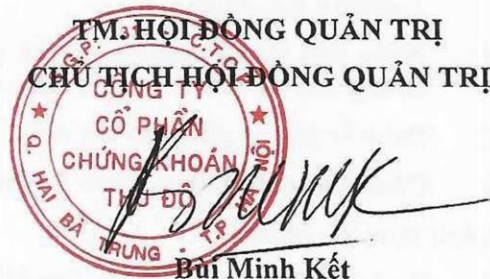 TM. HỘI ĐỒNG QUẢN TRỊ
CHỦ TỊCH HỘI ĐỒNG QUẢN TRỊ
CÔNG TY
CỔ PHẦN
CHỨNG KHOÁN
THỦ ĐÔ
Q. HAI BÀ TRUNG - T.P HÀ NỘI
Bùi Minh Kết